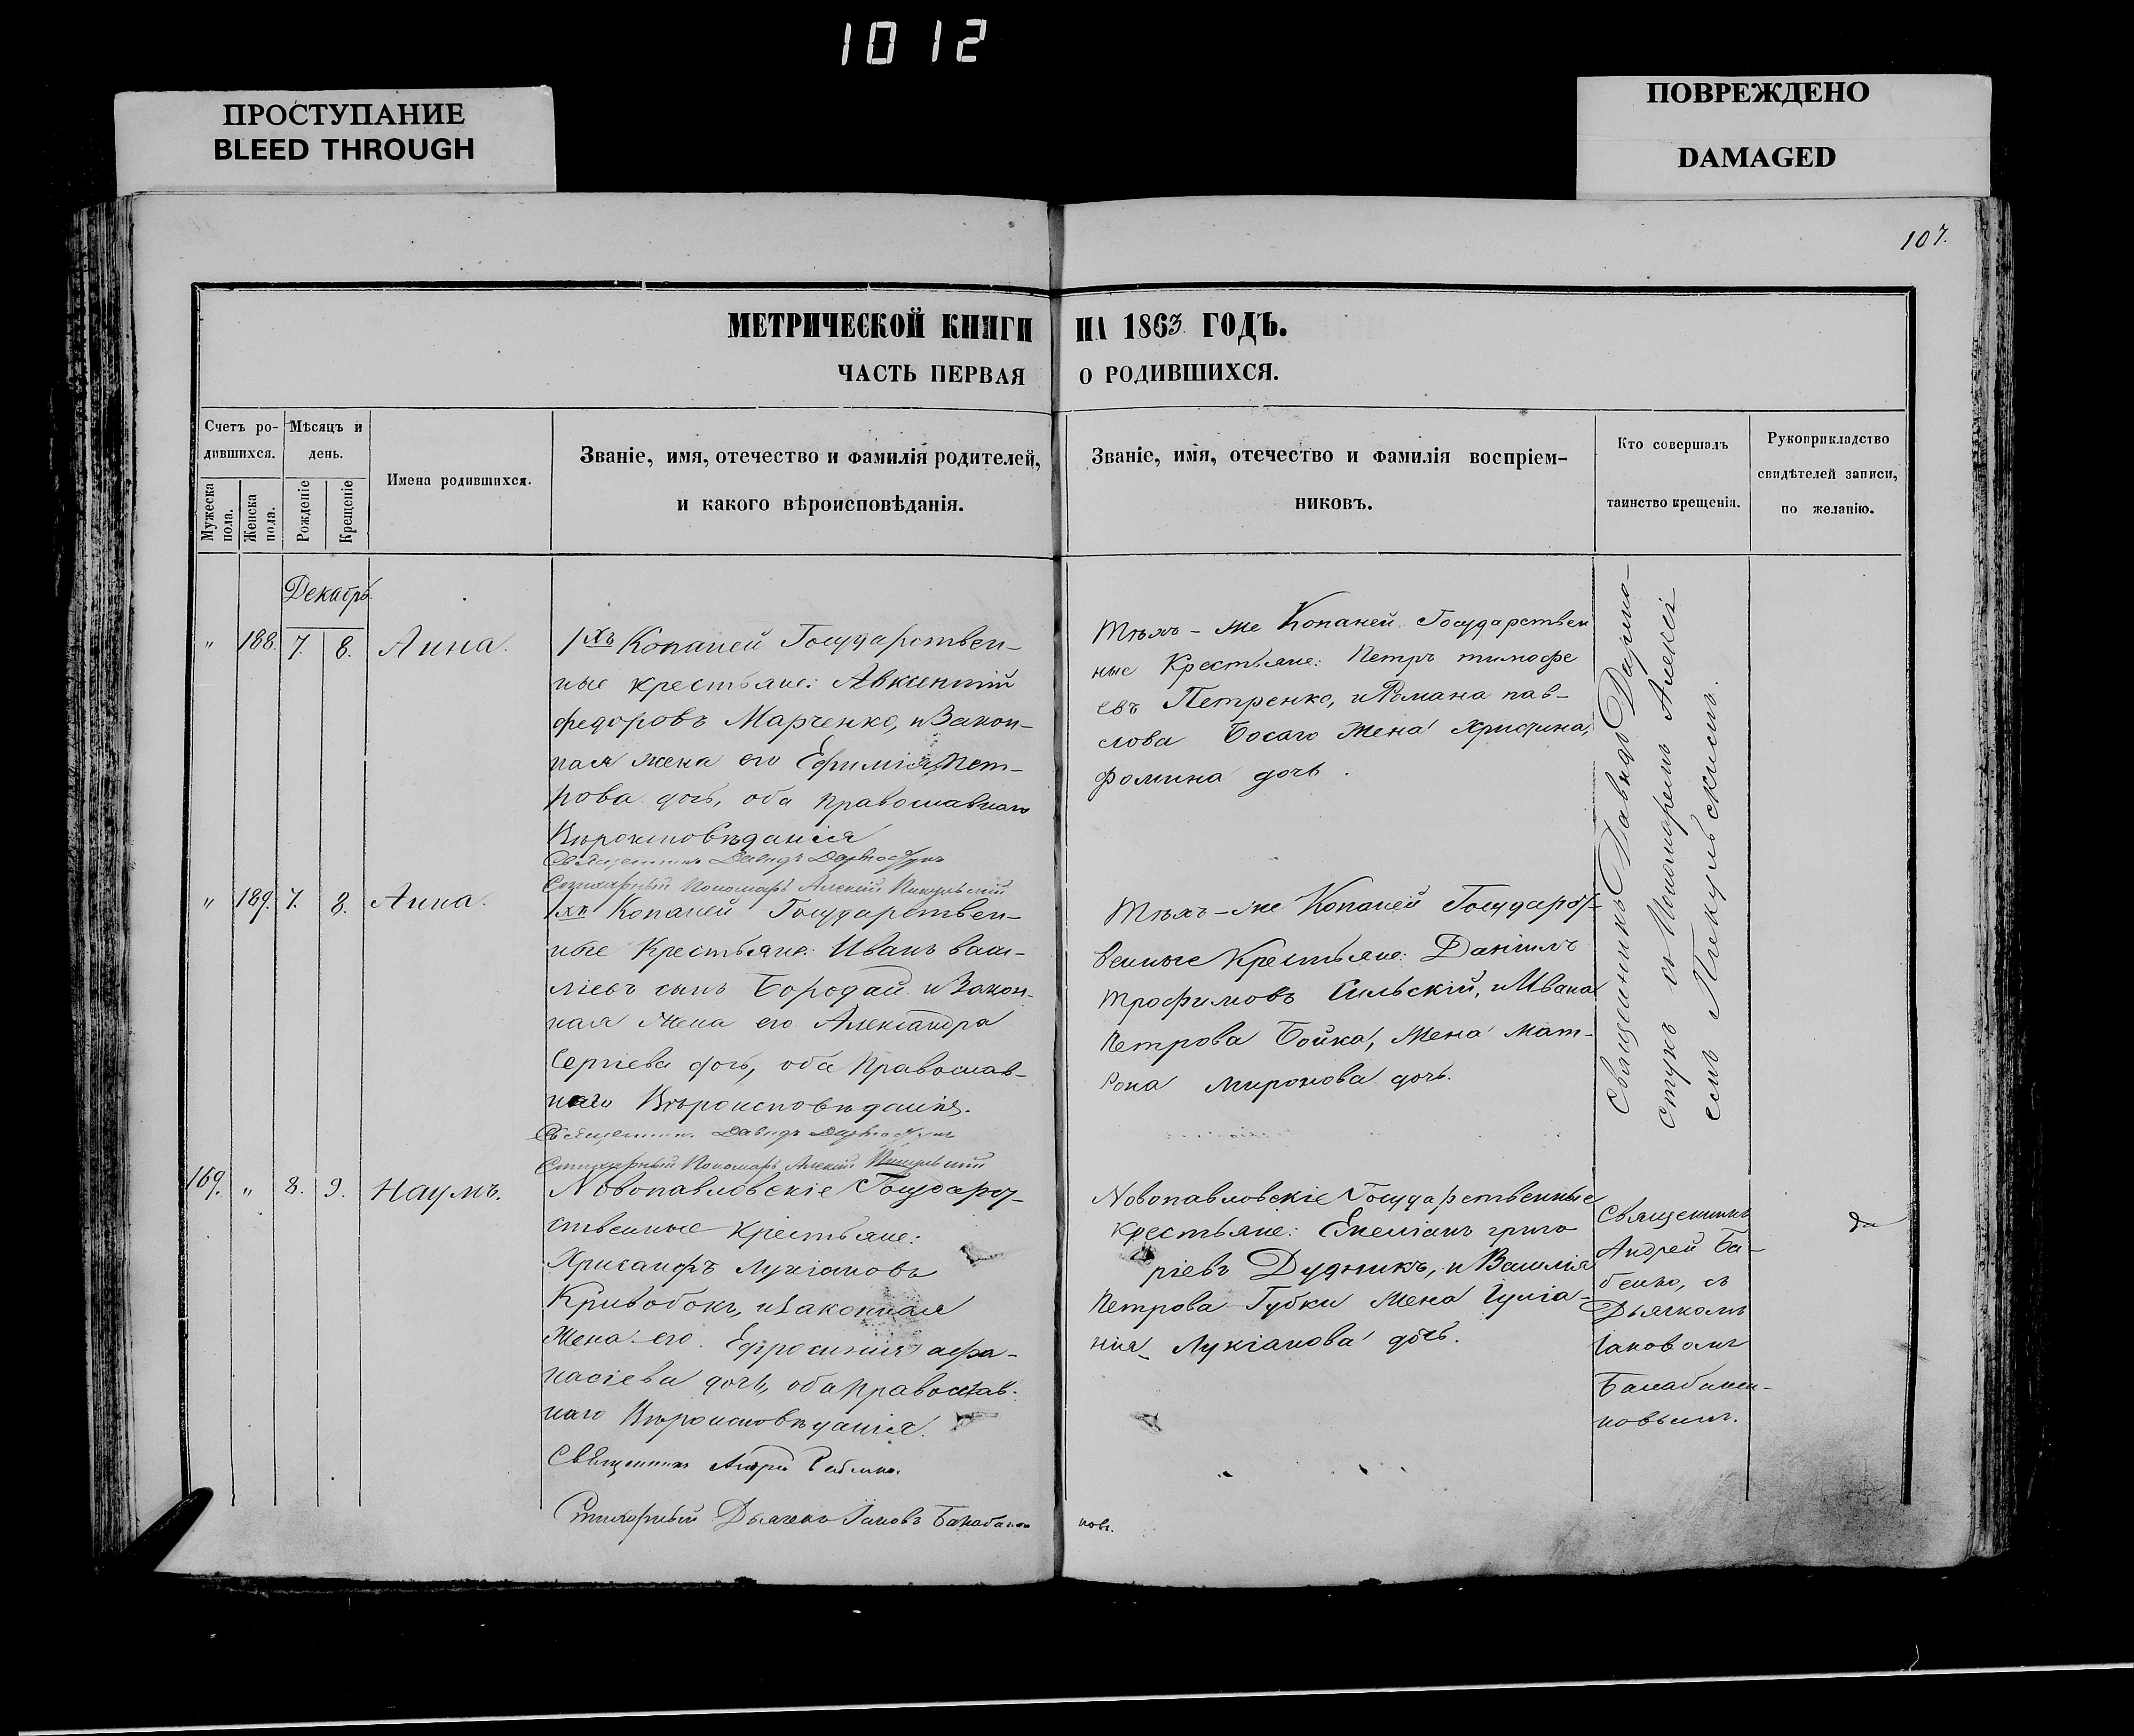 1012
ПРОСТУПАНИЕ
BLEED THROUGH
ПОВРЕЖДЕНО
DAMAGED
107.
МЕТРИЧЕСКОЙ КНИГИ НА 1863 ГОДЪ.
ЧАСТЬ ПЕРВАЯ О РОДИВШИХСЯ.
Счетъ ро-
дившихся.
Мужеска
пола.
Женска
пола.
Мѣсяцъ и
день.
Рожденіе
Крещеніе
Имена родившихся.
Званіе, имя, отечество и фамилія родителей,
и какого вѣроисповѣданія.
Званіе, имя, отечество и фамилія воспріем-
никовъ.
Кто совершалъ
таинство крещенія.
Рукоприкладство
свидѣтелей записи,
по желанію.
Декабрь
" 188. 7. 8. Анна.
1хъ Копаней Государствен-
ные крестьяне: Авксентій
федоровъ Марченко, и Закон-
ная жена его Ефимія Пет-
рова дочь, оба православнаго
Вѣроисповѣданія
Священникъ Давидъ
Стихарный Пономарь Алексій Пикульскій
Тѣхъ-же Копаней Государствен
ные Крестьяне: Петръ тимофе
евъ Петренко, и Романа пав-
лова Босаго Жена Христина,
фомина дочь.
Священникъ Давидъ
съ Пономаремъ Алексі
емъ Пикульскимъ.
" 189. 7. 8. Анна.
1хъ Копаней Государствен-
ные Крестьяне: Иванъ васи-
ліевъ сынъ Бородай и Закон-
ная Жена его Александра
Сергіева дочь, оба Православ-
наго Вѣроисповѣданія.
Священникъ Давидъ
Стихарный Пономарь Алексій Пикульскій
Тѣхъ-же Копаней Государст-
венные Крестьяне: Даніилъ
трофимовъ Сильскій, и Ивана
Петрова Бойка, Жена Мат-
рона миронова дочь.
169. " 8. 9. Наумъ.
Новопавловскіе Государ-
ственные крестьяне:
Хрисанфъ лукіановъ
Кривобокъ, и Законная
Жена его Ефросинія афа-
насіева дочь, оба православ-
наго Вѣроисповѣданія.
Священникъ Андрей
Стихарный Дьячекъ Іаковъ Балабановъ.
Новопавловскіе Государственные
крестьяне: Емеліанъ григо
ріевъ Дудникъ, и Василія
Петрова Губки Жена Іуліа-
нія Лукіанова дочь.
Священникъ
Андрей Ба-
бенко, съ
Дьячкомъ
Іаковомъ
Балабано-
новымъ.